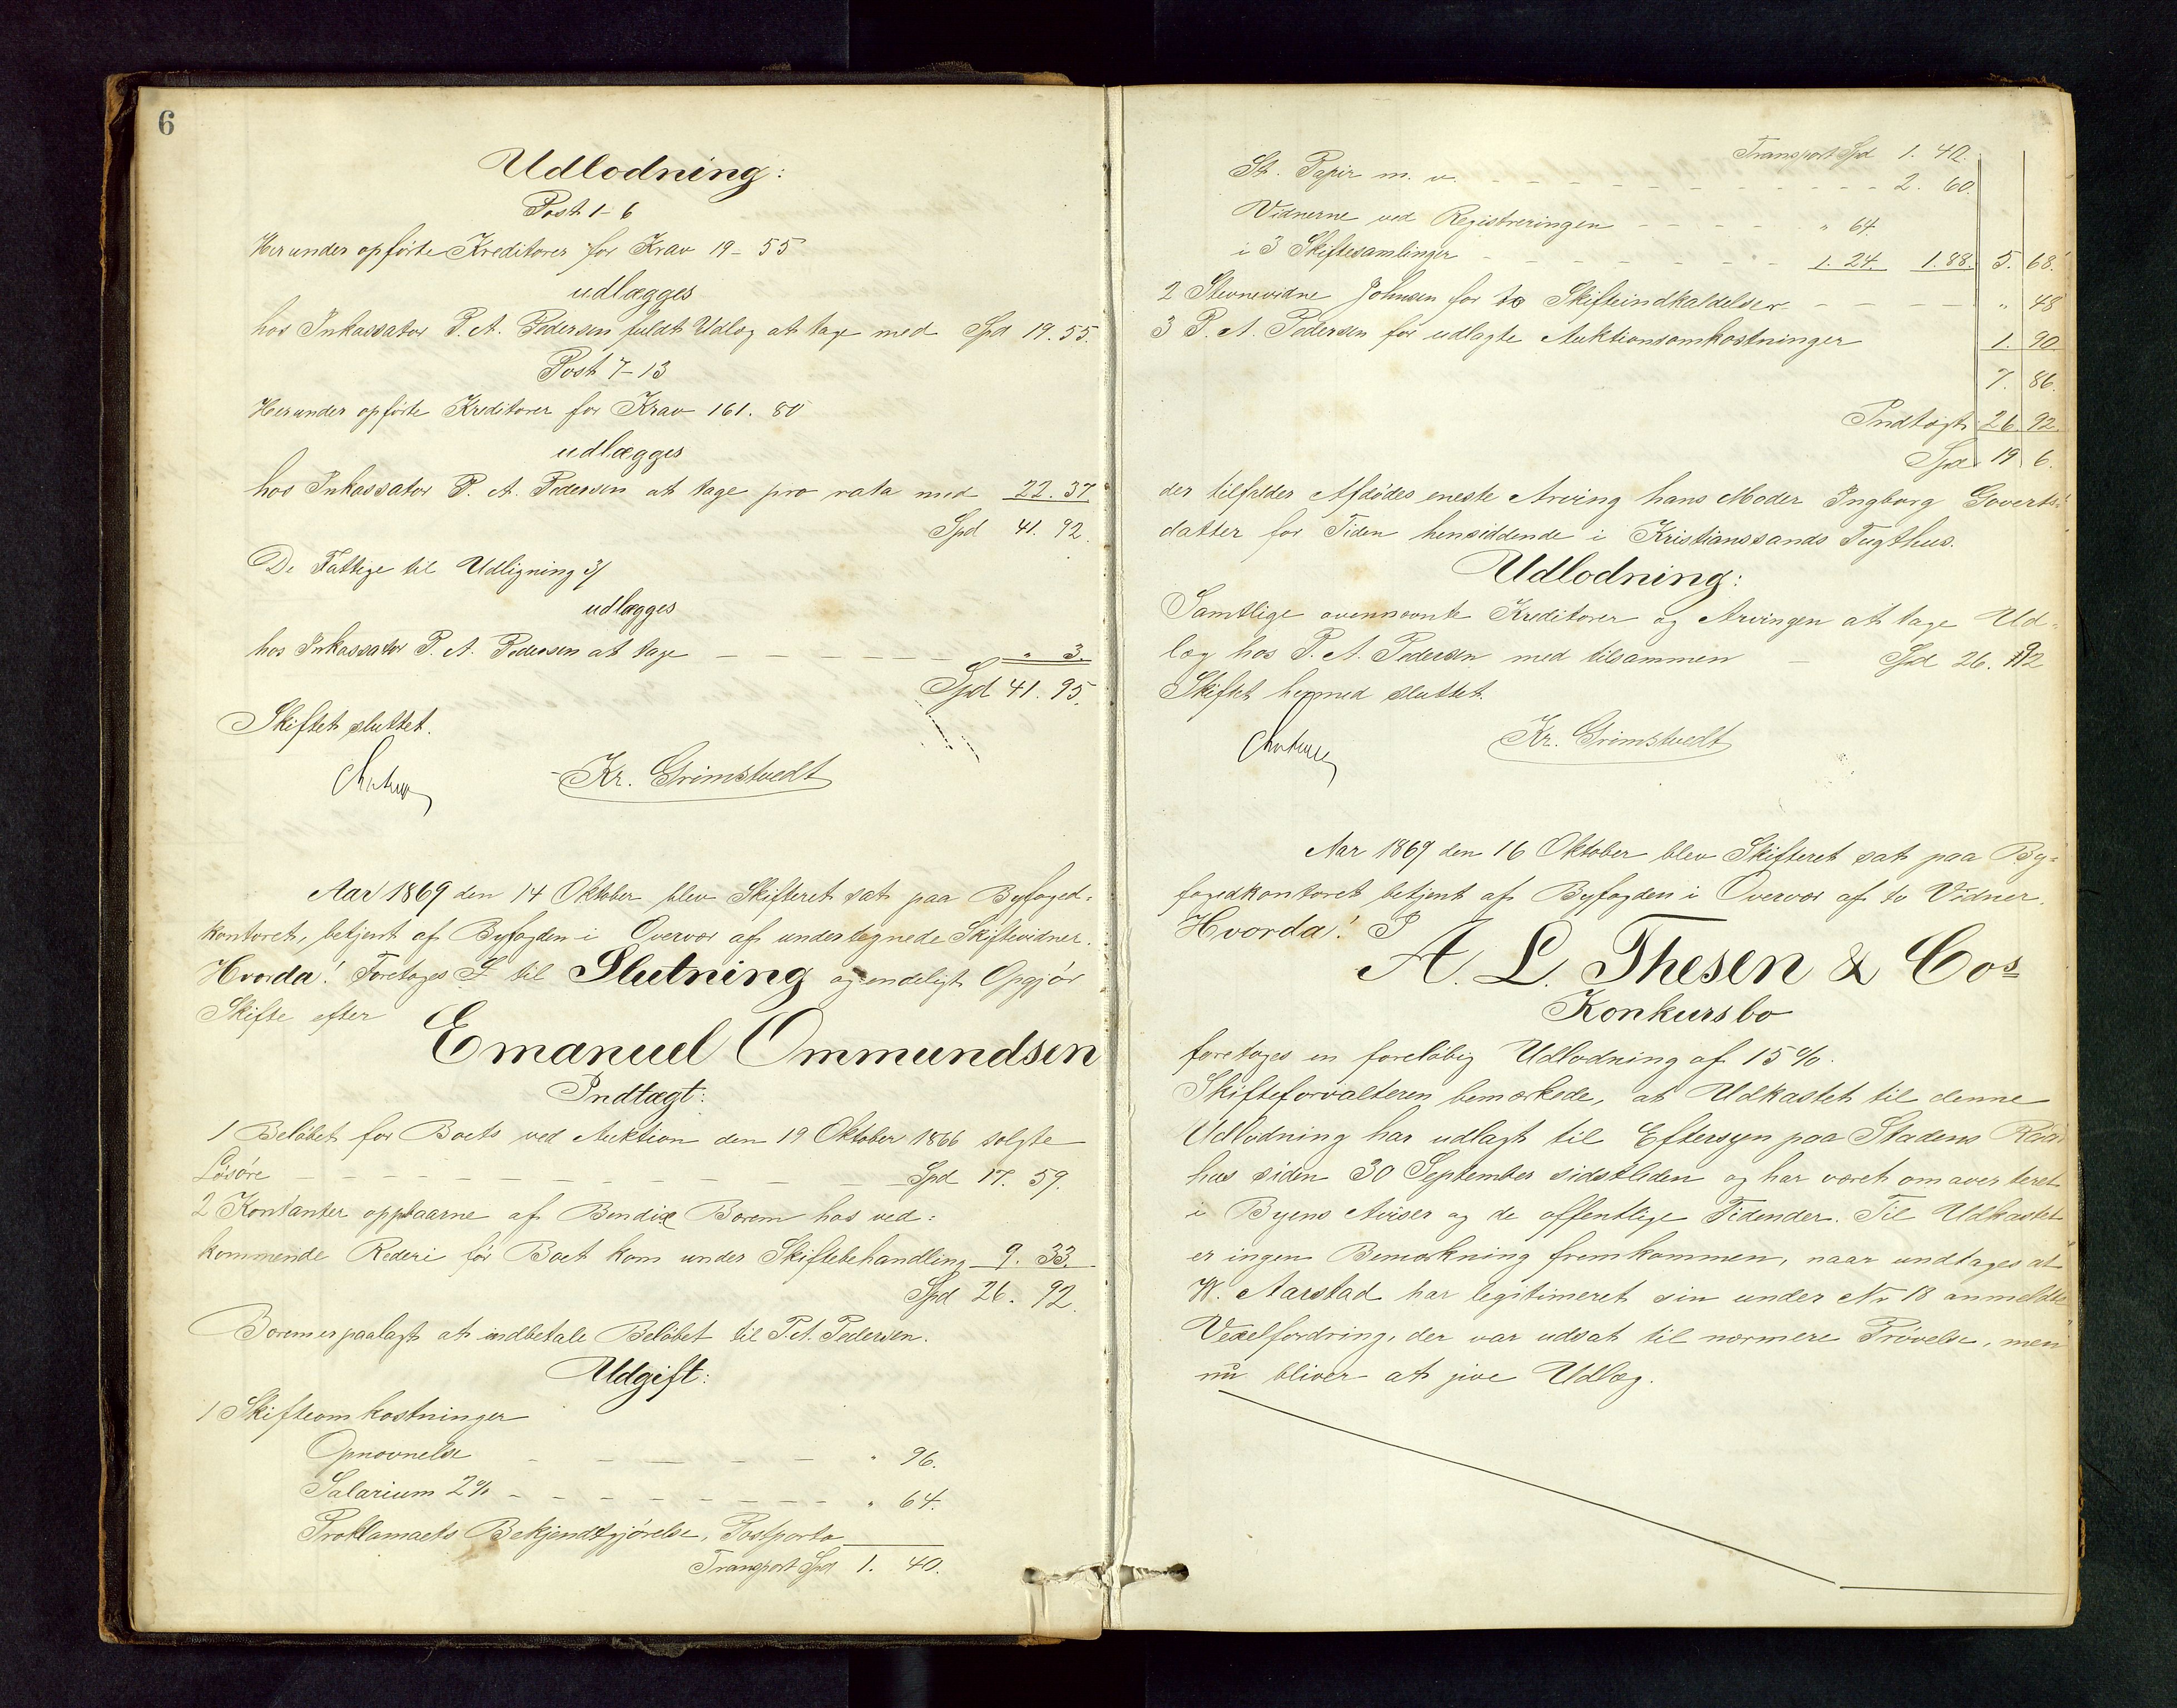 6
Udlodning:
Post 1-6
Herunder opførte Kreditorer for Krav 19-55
udlægges
hos Inkassator P. A. Pedersen fuldt Udlog at tage med Spd 19.55.
Post 7-13
Herunder opførte Kreditorer for Krav 161. 80
udlægges
hos Inkassator P. A. Pedersen at tage pro rata med 22.37
Spd 41. 92.
De Fattige til Udligning 3/
udlægges
hos Inkassator P. A. Pedersen at tage — — — — — " 3.
Spd 41. 95.
Skiftet sluttet.
Kr. Grimstvedt
Aar 1869 den 14 Oktober blev Skifteret sat paa Byfoged-
kontoret, betjent af Byfogden i Overvær af undertegnede Skiftevidner.
Hvorda! Foretoges S til Slutning og endeligt Opgjör
Skifte efter
Emanuel Ommundsen
Indtægt:
1 Beløbet for Boets ved Auktion den 19 Oktober 1866 solgte
Løsøre — — — — — — — — — Spd 17. 59.
2 Kontanter oppbaarne af Bendix Borem hos ved-
kommende Rederi før Boet kom under Skiftebehandling 9. 33.
Spd 26. 92.
Borem er paalagt at indbetale Beløbet til P. A. Pedersen.
Udgift:
1 Skifteomkostninger
Opnævnelse — — — — — " 96.
Salarium 2% — — — — — — — " 64.
Proklamaets Bekjendtgjørelse, Postporto
Transport Spd 1. 40.
Transport Spd 1. 40.
St. Papir m. v. — — — — — — — — — 2. 60.
Vidnerne ved Registreringen — — — — " 64.
i 3 Skiftesamlinger — — — — — — 1. 24. 1.88. 5. 68.
2 Stevnevidne Johnsen for to Skifteindkaldelser — — — — " 48
3 P. A. Pedersen for udlagte Auktionsomkostninger 1. 90
7. 86.
Indtægt 26. 92.
Spd 19. 6.
der tilfalder Afdødes eneste Arving hans Moder Ingborg Goverts-
datter for Tiden hensiddende i Kristianssands Tugthus.
Udlodning:
Samtlige ovennævnte Kreditorer og Arvingen at tage Ud-
læg hos P. A. Pedersen med tilsammen — Spd 26. 92
Skiftet hermed sluttet.
Kr. Grimstvedt
Aar 1869 den 16 Oktober blev Skifteret sat paa By-
fogedkontoret betjent af Byfogden i Overvær af to Vidner.
Hvorda! I
A. L. Thesen & Cos
Konkursbo
foretoges en foreløbig Udlodning af 15 %.
Skifteforvalteren bemærkede, at Udkastet til denne
Udlodning har udlagt til Eftersyn paa Stadens Raad
hus siden 30 September sidstleden og har været omaverteret
i Byens Aviser og de offentlige Tidender. Til Udkastet
er ingen Bemærkning fremkommen, naar undtages at
W. Aarstad har legitimeret sin under No 18 anmeldte
Vexelfordring, der var udsat til nærmere Prøvelse, men
nu bliver at give Udlæg.